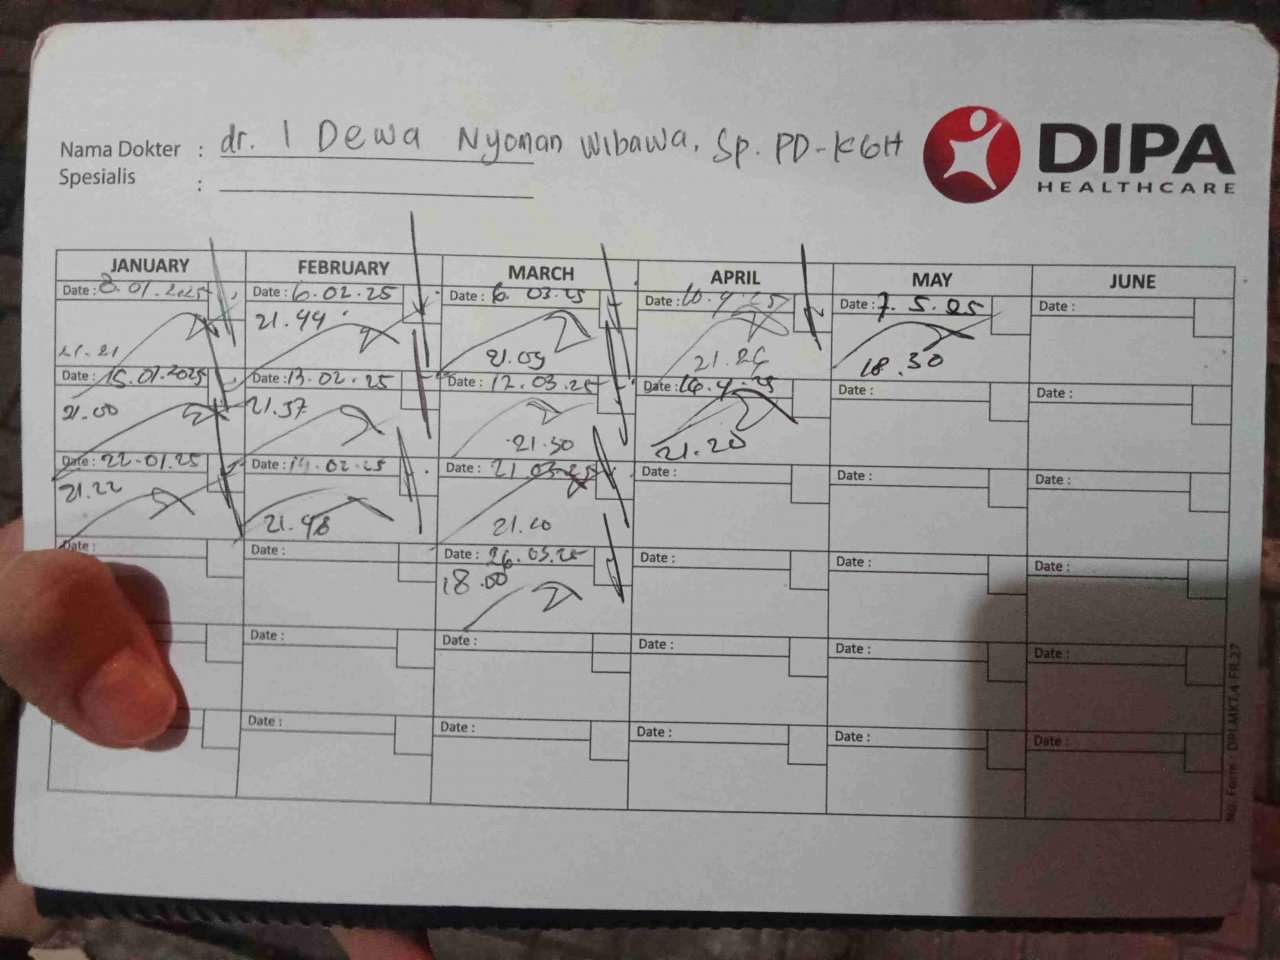 Nama Dokter : dr. I Dewa Nyoman Wibawa, Sp. PD-KGH
Spesialis :
DIPA
HEALTHCARE
JANUARY FEBRUARY MARCH APRIL MAY JUNE
Date : 8.01.2025 Date : 6.02.25 Date : 6 03.25 Date : 10.4.25 Date : 7.5.25 Date :
21.21 21.44 21.09 21.26 18.30
Date : 15.01.2025 Date : 13.02.25 Date : 12.03.25 Date : 16.4.25 Date : Date :
21.00 21.37 21.30 21.20
Date : 22-01.25 Date : 19.02.25 Date : 21.03.25 Date : Date : Date :
21.22 21.48 21.10
Date : Date : Date : 26.03.25 Date : Date : Date :
18.00
Date : Date : Date : Date : Date :
Date : Date : Date : Date : Date :
No. Form : DPI.MKT.4-FR.27